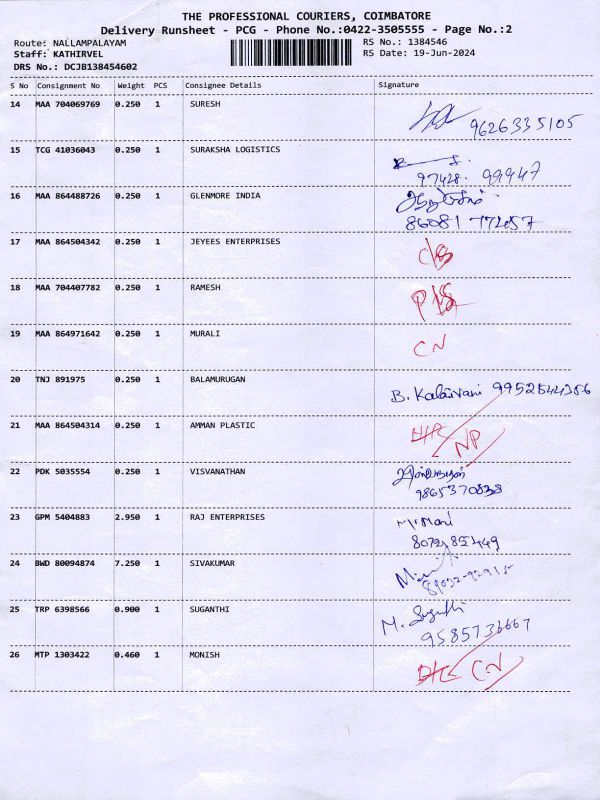 THE PROFESSIONAL COURIERS, COIMBATORE
Delivery Runsheet - PCG - Phone No.:0422-3505555 - Page No.:2
Route: NALLAMPALAYAM RS No.: 1384546
Staff: KATHIRVEL RS Date: 19-Jun-2024
DRS No.: DCJB138454602
S No Consignment No Weight PCS Consignee Details Signature
14 MAA 704069769 0.250 1 SURESH
9626335105
15 TCG 41036043 0.250 1 SURAKSHA LOGISTICS
97428 99947
16 MAA 864488726 0.250 1 GLENMORE INDIA
86081 77457
17 MAA 864504342 0.250 1 JEYEES ENTERPRISES
18 MAA 704407782 0.250 1 RAMESH
19 MAA 864971642 0.250 1 MURALI
CN
20 TNJ 891975 0.250 1 BALAMURUGAN
B. Kalaivani 9952544386
21 MAA 864504314 0.250 1 AMMAN PLASTIC
NP
22 PDK 5035554 0.250 1 VISVANATHAN
23 GPM 5404883 2.950 1 RAJ ENTERPRISES
M. Mani
24 BWD 80094874 7.250 1 SIVAKUMAR
25 TRP 6398566 0.900 1 SUGANTHI
M. Suganthi
26 MTP 1303422 0.460 1 MONISH
CN